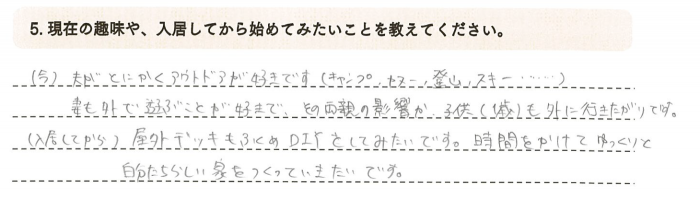 5. 現在の趣味や、入居してから始めてみたいことを教えてください。
(今) 夫がとにかくアウトドアが好きです (キャンプ, カヌー, 登山, スキー……)
妻も外で遊ぶことが好きで、その両親の影響か、子供(1歳)も外に行きたがりです。
(入居してから) 屋外デッキもふくめDIYとしてみたいです。時間をかけてゆっくりと
自分たちらしい家をつくっていきたいです。